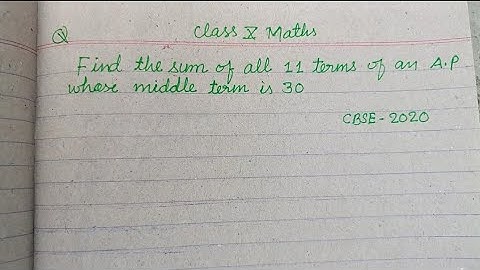 Q Class X Maths
Find the sum of all 11 terms of an A.P
whose middle term is 30
CBSE - 2020